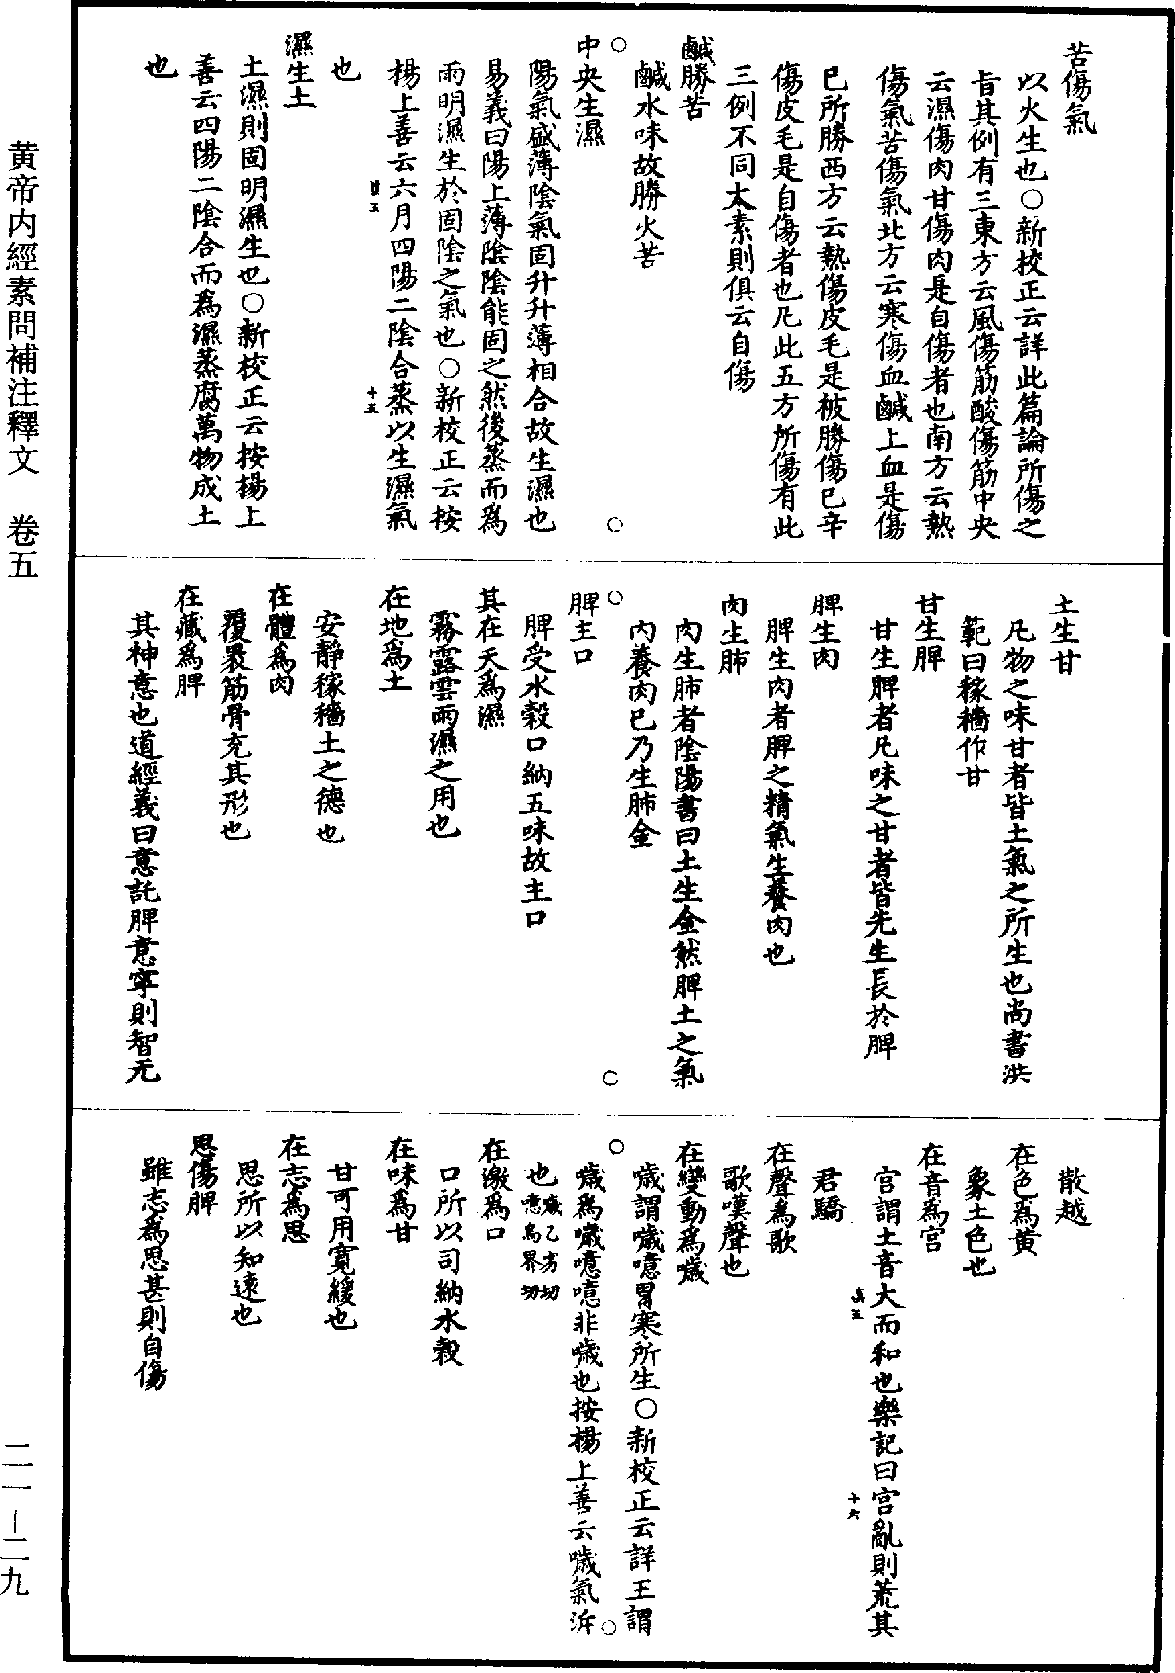 苦傷氣
以火生也○新校正云詳此篇論所傷之
旨其例有三東方云風傷筋酸傷筋中央
云濕傷肉甘傷肉是自傷者也南方云熱
傷氣苦傷氣北方云寒傷血鹹上血是傷
已所勝西方云熱傷皮毛是被勝傷已辛
傷皮毛是自傷者也凡此五方所傷有此
三例不同太素則俱云自傷
鹹勝苦
鹹水味故勝火苦
○
○
中央生濕
陽氣盛薄陰氣固升升薄相合故生濕也
易義曰陽上薄陰陰能固之然後蒸而為
雨明濕生於固陰之氣也○新校正云按
楊上善云六月四陽二陰合蒸以生濕氣
十五
也
濕生土
土濕則固明濕生也○新校正云按楊上
善云四陽二陰合而為濕蒸腐萬物成土
也
土生甘
凡物之味甘者皆土氣之所生也尚書洪
範曰稼穡作甘
甘生脾
甘生脾者凡味之甘者皆先生長於脾
脾生肉
脾生肉者脾之精氣生養肉也
肉生肺
肉生肺者陰陽書曰土生金然脾土之氣
內養肉已乃生肺金
○
○
脾主口
脾受水穀口納五味故主口
其在天為濕
霧露雲雨濕之用也
在地為土
安靜稼穡土之德也
在體為肉
覆裹筋骨充其形也
在藏為脾
其神意也道經義曰意託脾意寧則智无
散越
在色為黃
象土色也
在音為宮
宮謂土音大而和也樂記曰宮亂則荒其
十六
君驕
在聲為歌
歌嘆聲也
在變動為噦
噦謂噦噫胃寒所生○新校正云詳王謂
○
○
噦為噦噫噫非噦也按楊上善云噦氣泝
也噦乙劣切
噫烏界切
在竅為口
口所以司納水穀
在味為甘
甘可用寬緩也
在志為思
思所以知遠也
思傷脾
雖志為思甚則自傷
黄帝内經素問補注釋文　卷五
二一－二九